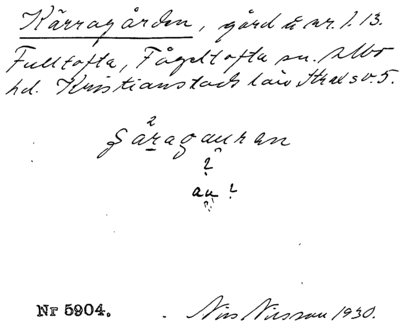 Kärragården, gård å nr. 1. 13.
Fulltofta, Fågeltofta sn. Albo
hd. Kristianstads län
2
au ?
Nr 5904. Nils Nilsson 1930.